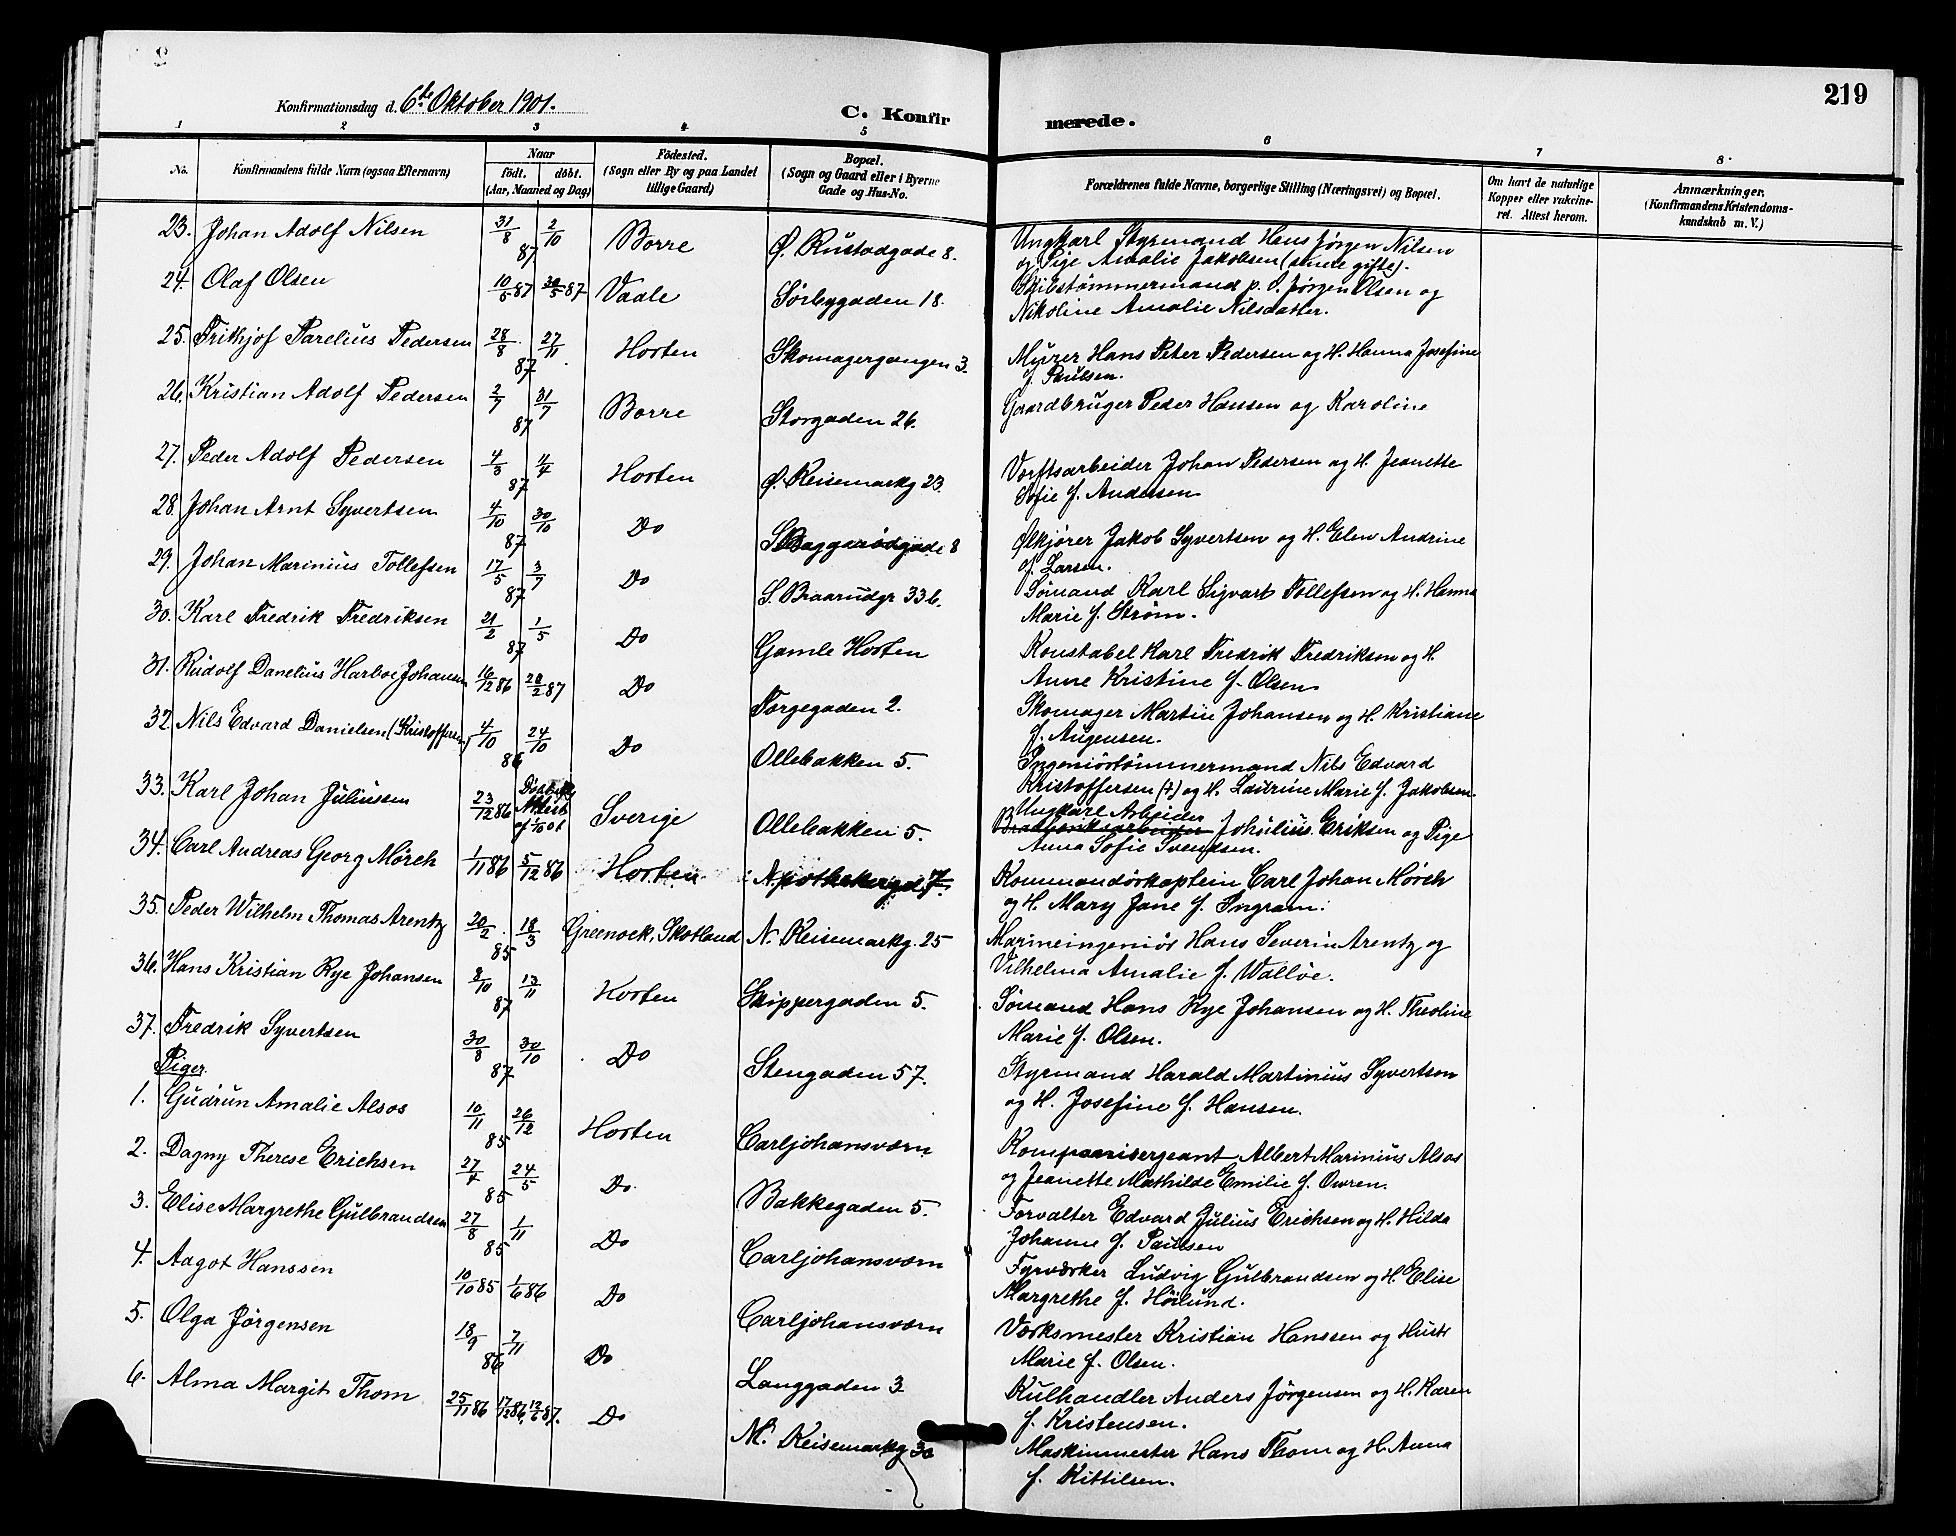 219
Konfirmationsdag d. 6te Oktober 1901.
C. Konfir merede.
1 2 3 4 5 6 7 8
No. Konfirmandens fulde Navn (ogsaa Efternavn) Naar födt. döbt. (Aar, Maaned og Dag) Födested. (Sogn eller By og paa Landet tillige Gaard) Bopæl. (Sogn og Gaard eller i Byerne Gade og Hus-No. Forældrenes fulde Navne, borgerlige Stilling (Næringsvei) og Bopæl. Om havt de naturlige Kopper eller vakcineret. Attest herom. Anmærkninger. (Konfirmandens Kristendomskundskab m. V.)
23. Johan Adolf Nilsen 31/8 2/10 87 Borre Ø. Rustadgade 8. Ungkarl Styrmand Hans Jørgen Nilsen
og Pige Amalie Jakobsen (senere gifte).
24. Olaf Olsen 10/5 87 30/5 87 Vaale Sørbygaden 18. Skibstømmermand p. O. Jørgen Olsen og
Nikoline Amalie Nilsdatter.
25. Frithjof Parelius Pedersen 28/8 27/11 87 Horten Skomagergangen 3. Myrer Hans Peter Pedersen og H. Hanna Josefine
f. Paulsen.
26. Kristian Adolf Pedersen 2/7 31/7 87 Borre Storgaden 26. Gaardbruger Peder Hansen og Karoline
27. Peder Adolf Pedersen 4/3 11/4 87 Horten Ø. Keisemarkg 23. Verftsarbeider Johan Pedersen og H. Jeanette
Sofie f. Andersen
28. Johan Arnt Syvertsen 4/10 30/10 87 Do S Baggerødgade 8 Ølkjører Jakob Syvertsen og H. Elen Andrine
f. Larsen.
29. Johan Marinius Tollefsen 17/5 3/7 87 Do S. Braarudgr 33 b. Sømand Karl Sigvart Tollefsen og H. Hanna
Marie f. Strøm.
30. Karl Fredrik Fredriksen 21/2 1/5 87 Do Gamle Horten Konstabel Karl Fredrik Fredriksen og H.
Anne Kristine f. Olsen
31. Rudolf Danelius Harboe Johansen 16/12 86 20/2 87 Do Torgegaden 2. Skomager Martin Johansen og H. Kristiane
f. Augensen.
32. Nils Edvard Danielsen (Kristoffersen) 4/10 24/10 86 Do Ollebakken 5. Ingeniørtømmermand Nils Edvard
Kristoffersen (+) og H. Laurine Marie f. Jakobsen
33. Karl Johan Juliussen 23/12 86 Attest af 1/10 01 Sverige Ollebakken 5. Ungkarl Arbeider
Julius Eriksen og Pige
Anna Sofie Svendsen.
34. Carl Andreas Georg Mørch 1/11 86 5/12 86 Horten Apothekergd. 7. Kommandørkaptein Carl Johan Mørch
og H. Mary Jane f. Ingram.
35. Peder Wilhelm Thomas Arentz 20/2 18/3 85 Greenock, Skotland N. Keisemarkg. 25 Marineingeniør Hans Severin Arentz og
Vilhelma Amalie f. Walløe.
36. Hans Kristian Rye Johansen 8/10 13/11 87 Horten Skippergaden 5. Sømand Hans Rye Johansen og H. Theoline
Marie f. Olsen.
37. Fredrik Syvertsen 30/8 30/10 87 Do Stengaden 57. Styrmand Harald Martinius Syvertsen
og H. Josefine f. Hansen.
Piger.
1. Gudrun Amalie Alsos 10/11 26/12 85 Horten Carljohansværn Kompanisergeant Albert Marinius Alsos
og Jeanette Mathilde Emilie f. Owren.
2. Dagny Therese Erichsen 27/4 24/5 85 Do Bakkegaden 5. Forvalter Edvard Julius Erichsen og H. Hilda
Johanne f. Paulsen
3. Elise Margrethe Gulbrandsen 27/8 1/11 85 Do Carljohansværn Fyrværker Ludvig Gulbrandsen og H. Elise
Margrethe f. Høilund.
4. Aagot Hanssen 10/10 85 1/6 86 Do Carljohansværn Værksmester Kristian Hanssen og Hustr
Marie f. Olsen.
5. Olga Jørgensen 18/9 7/11 86 Do Langgaden 3 Kulhandler Anders Jørgensen og H. Karen
f. Kristensen.
6. Alma Margit Thom 25/11 86 17/12 86, 12/6 87. Do N. Keisemarkg 30 Maskinmester Hans Thom og H. Anna
f. Kittilsen.